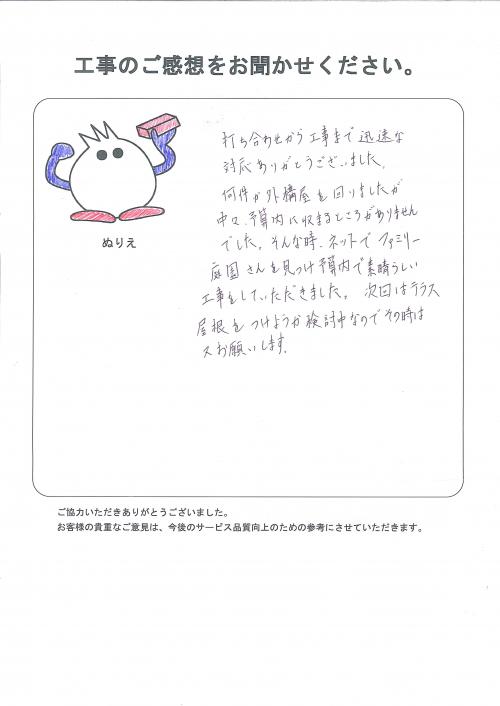 工事のご感想をお聞かせください。
ぬりえ
打ち合わせから工事まで迅速な
対応ありがとうございました。
何件か外構屋を回りましたが
中々、予算内に収まるところがありません
でした。そんな時、ネットでファミリー
庭園さんを見つけ予算内で素晴らしい
工事をしていただきました。次回はテラス
屋根をつけようか検討中なのでその時は
又お願いします。
ご協力いただきありがとうございました。
お客様の貴重なご意見は、今後のサービス品質向上のための参考にさせていただきます。